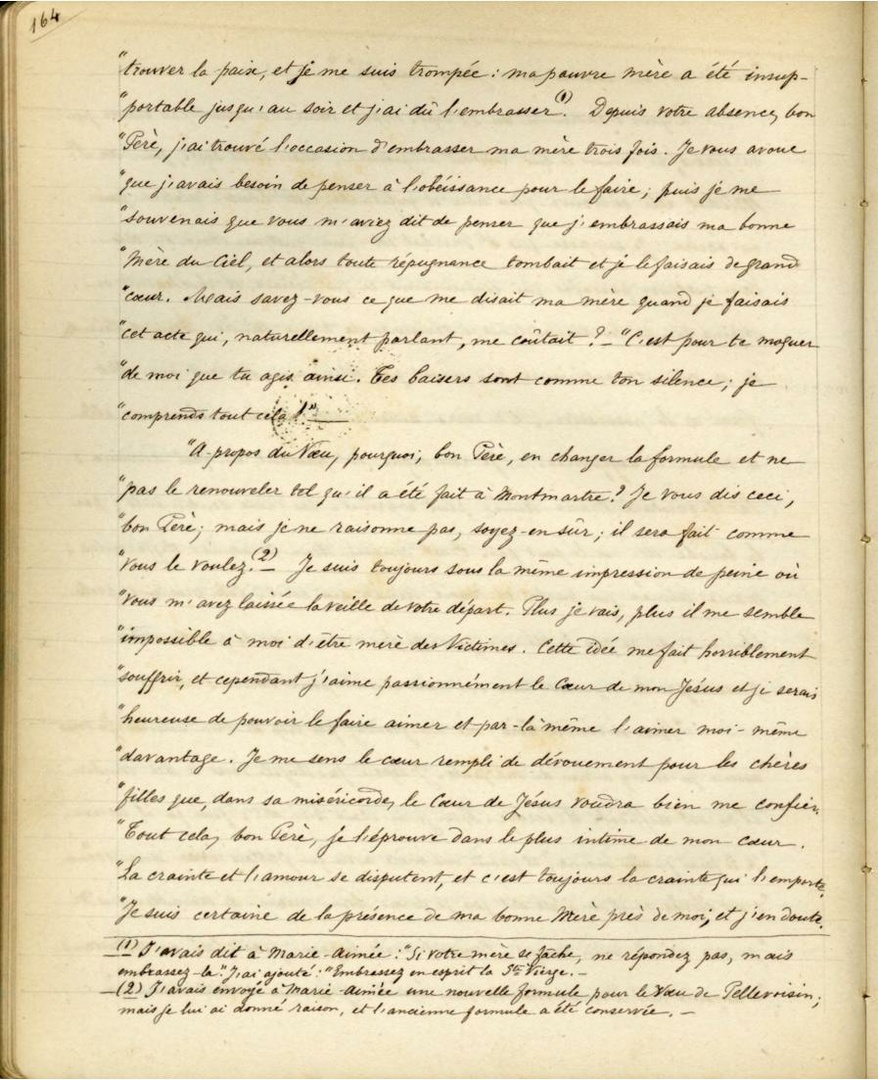 164
"trouver la paix, et je me suis trompée : ma pauvre mère a été insup-
"portable jusqu'au soir et j'ai dû l'embrasser (1). Depuis votre absence, bon
"Père, j'ai trouvé l'occasion d'embrasser ma mère trois fois. Je vous avoue
"que j'avais besoin de penser à l'obéissance pour le faire ; puis je me
"souvenais que vous m'aviez dit de penser que j'embrassais ma bonne
"Mère du Ciel, et alors toute répugnance tombait et je le faisais de grand
"cœur. Mais savez-vous ce que me disait ma mère quand je faisais
"cet acte qui, naturellement parlant, me coûtait ? — "C'est pour te moquer
"de moi que tu agis ainsi. Tes baisers sont comme ton silence ; je
"comprends tout cela !" —
"A propos du Vœu, pourquoi, bon Père, en changer la formule et ne
"pas le renouveler tel qu'il a été fait à Montmartre ? Je vous dis ceci,
"bon Père ; mais je ne raisonne pas, soyez-en sûr ; il sera fait comme
"vous le voulez. (2) — Je suis toujours sous la même impression de peine où
"vous m'avez laissée la veille de votre départ. Plus je vais, plus il me semble
"impossible à moi d'être mère des Victimes. Cette idée me fait horriblement
"souffrir, et cependant j'aime passionnément le Cœur de mon Jésus et je serais
"heureuse de pouvoir le faire aimer et par-là même l'aimer moi-même
"davantage. Je me sens le cœur rempli de dévouement pour les chères
"filles que, dans sa miséricorde, le Cœur de Jésus voudra bien me confier.
"Tout cela, bon Père, je l'éprouve dans le plus intime de mon cœur.
"La crainte et l'amour se disputent, et c'est toujours la crainte qui l'emporte.
"Je suis certaine de la présence de ma bonne Mère près de moi, et j'en doute.
(1) J'avais dit à Marie-Aimée : "Si votre mère se fâche, ne répondez pas, mais
embrassez-la." J'ai ajouté : "Embrassez en esprit la Ste Vierge. —
(2) J'avais envoyé à Marie-Aimée une nouvelle formule pour le Vœu de Pellevoisin ;
mais je lui ai donné raison, et l'ancienne formule a été conservée. —